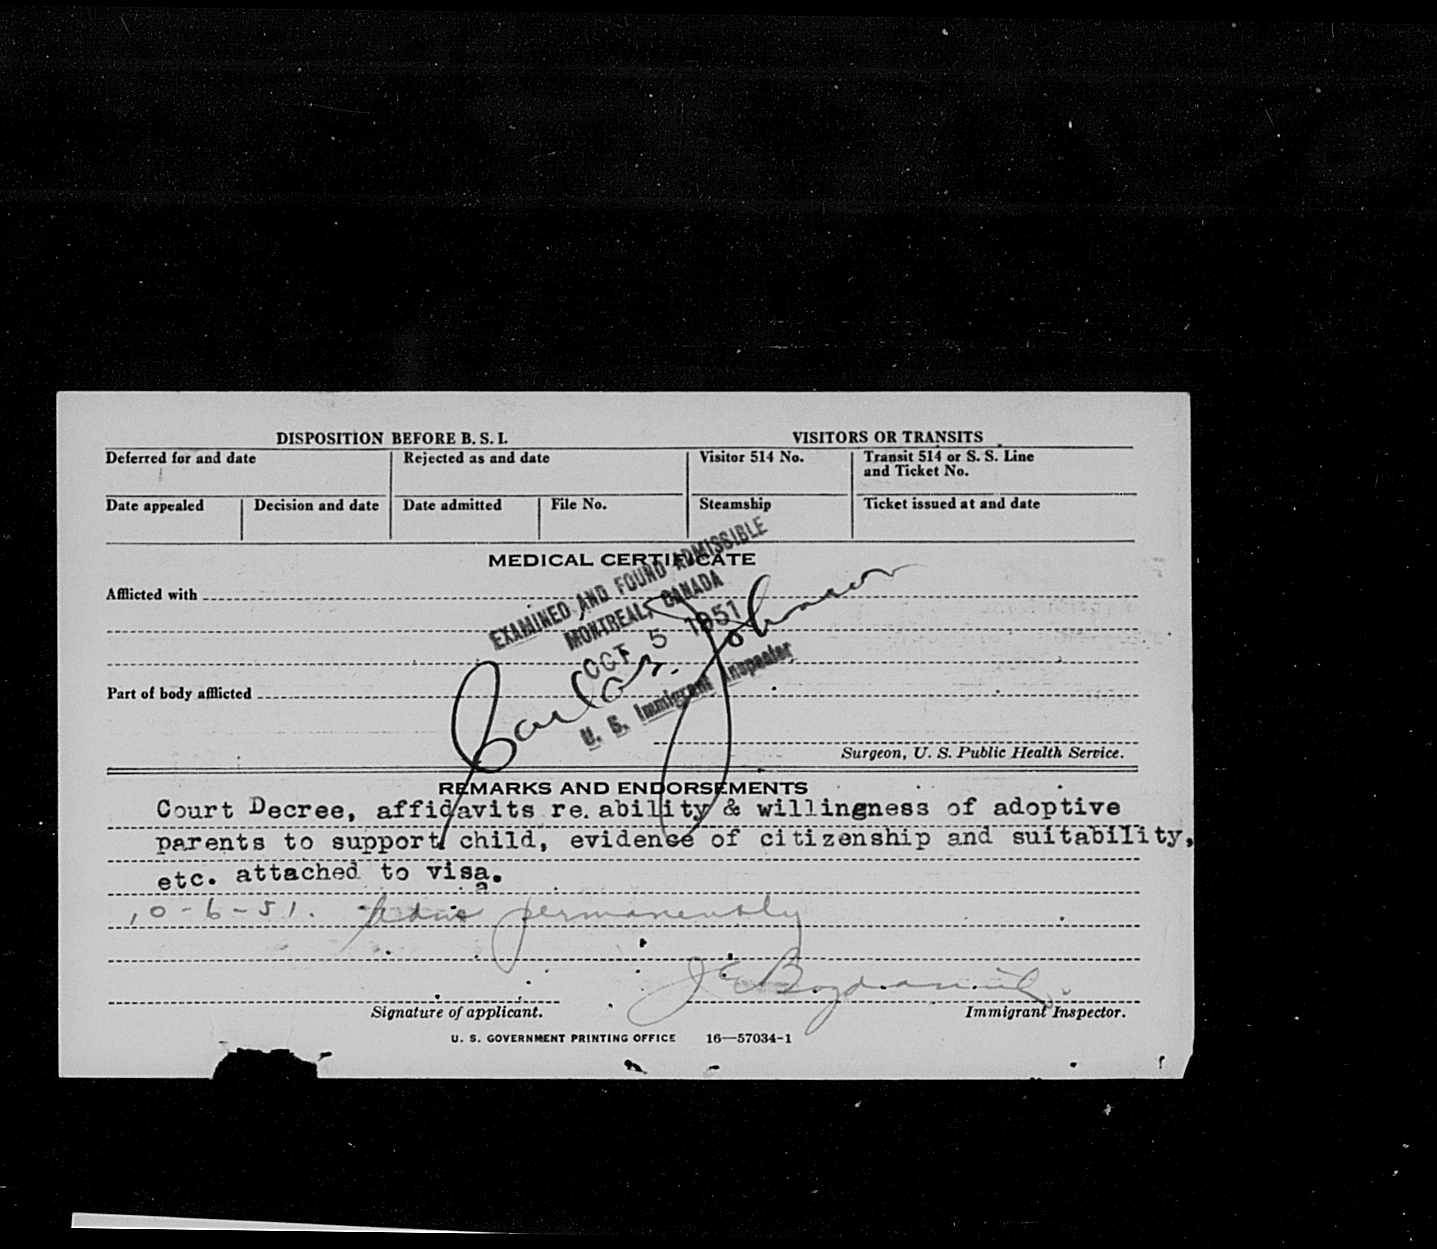 DISPOSITION BEFORE B. S. I. VISITORS OR TRANSITS
Deferred for and date Rejected as and date Visitor 514 No. Transit 514 or S. S. Line and Ticket No.
Date appealed Decision and date Date admitted File No. Steamship Ticket issued at and date
MEDICAL CERTIFICATE
EXAMINED AND FOUND ADMISSIBLE
MONTREAL, CANADA
OCT 5 1951
U. S. Immigrant Inspector
Johnson
Afflicted with
Part of body afflicted
Surgeon, U. S. Public Health Service.
REMARKS AND ENDORSEMENTS
Court Decree, affidavits re. ability & willingness of adoptive
parents to support child, evidence of citizenship and suitability,
etc. attached to visa.
10-6-51. permanently
Signature of applicant. Immigrant Inspector.
U. S. GOVERNMENT PRINTING OFFICE 16—57034-1